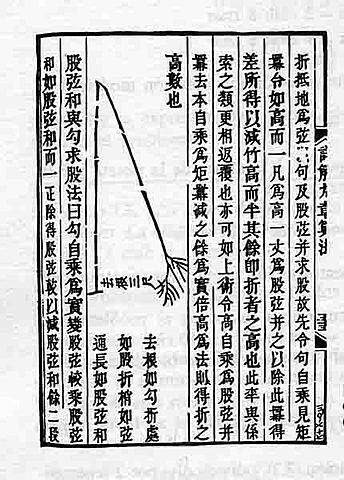 詳解九章算法
折抵地為弦以句及股弦并求股故先令句自乘見矩
羃令如高而一凡為高一丈為股弦并之以除此羃得
差所得以減竹高而半其餘即折者之高也此率與係
索之類更相返覆也亦可如上術令高自乘為股弦并
羃去本自乘為矩羃減之餘為實倍高為法則得折之
高數也
去根三尺
去根如勾折處
如股折梢如弦
通長如股弦和
股弦和與勾求股法曰勾自乘為實股弦較乘股弦
和如股弦和而一正除得股弦較以減股弦和餘二段